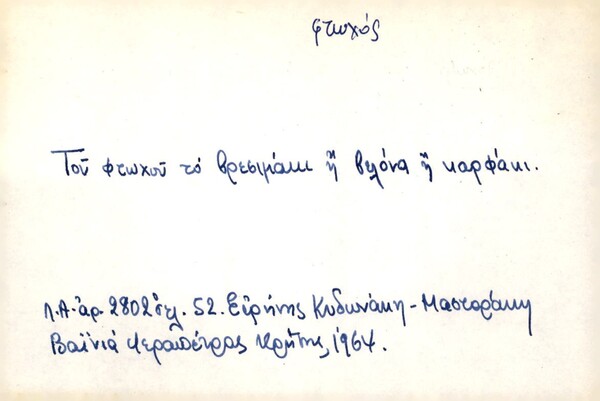 φτωχός
Τοῦ φτωχοῦ τό βρεσιμάκι ἤ βελόνα ἤ καρφάκι.
Λ.Α. ἀρ. 2802 σελ. 52. Εἰρήνης Κυδωνάκη - Μαστοράκη
Βαϊνιά Ἱεραπέτρας Κρήτης, 1964.